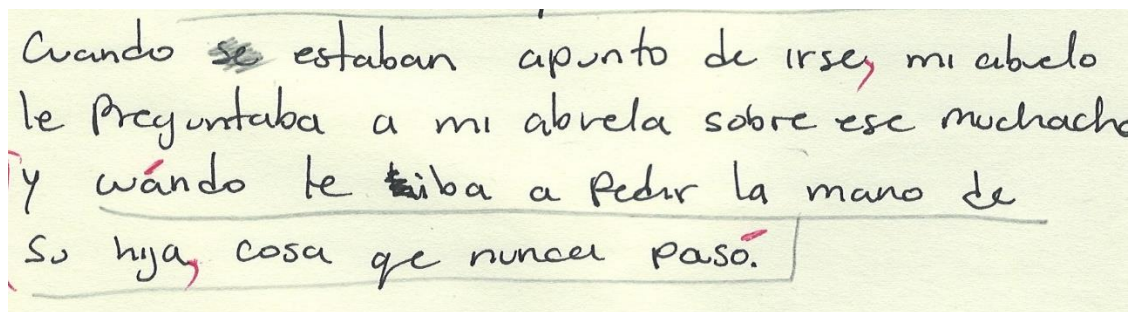 Cuando estaban apunto de irse, mi abuelo
le Preguntaba a mi abuela sobre ese muchacho
y cuándo le iba a Pedir la mano de
su hija, cosa qe nunca pasó.